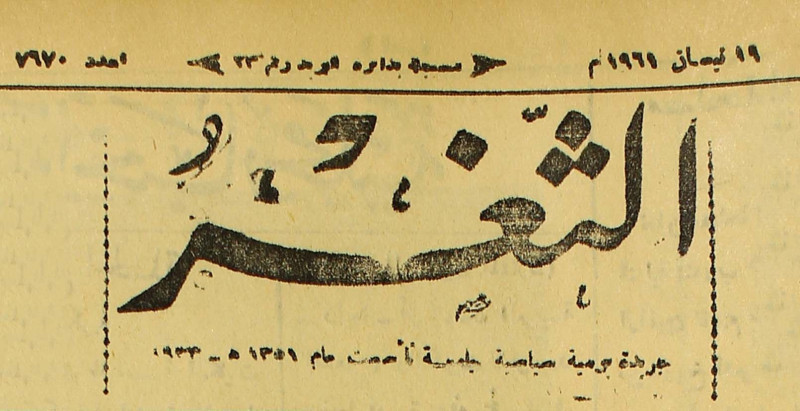 ١٩ نيسان ١٩٦١ م مسجلة بدائرة البريد رقم ٢٣ العدد ٧٦٧٠
الثغر
جريدة يومية سياسية جامعة تأسست عام ١٣٥١ ه - ١٩٣٣